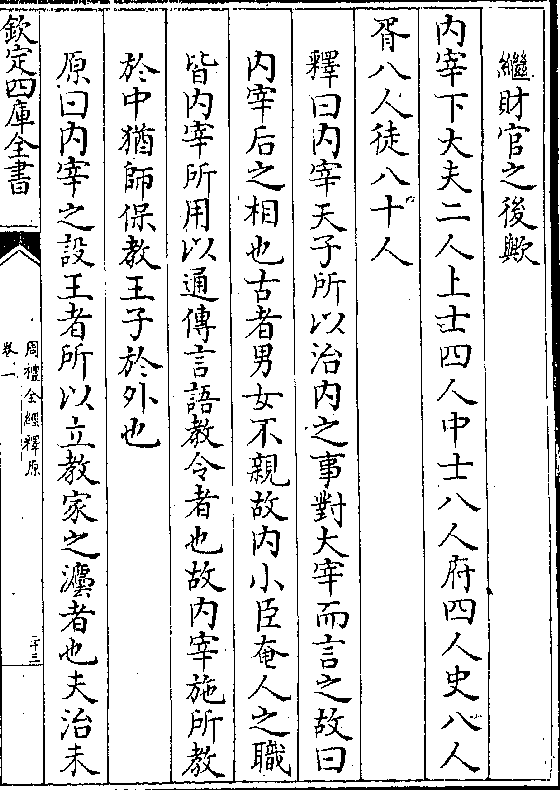 繼財官之後歟
内宰下大夫二人上士四人中士八人府四人史八人
胥八人徒八十人
釋曰内宰天子所以治内之事對大宰而言之故曰
内宰后之相也古者男女不親故内小臣奄人之職
皆内宰所用以通傳言語教令者也故内宰施所教
於中猶師保教王子於外也
原曰内宰之設王者所以立教家之灋者也夫治未
欽定四庫全書
周禮全經釋原
卷一
二十三